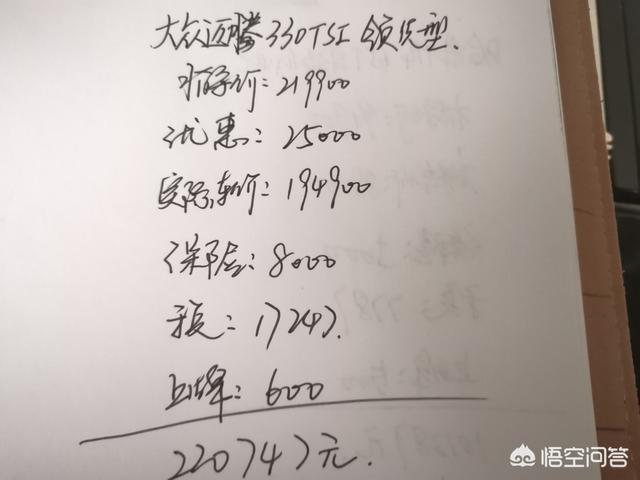 大众迈腾330TSI 领先型.
指导价:219900
优惠:25000
实际车价:194900
保险:8000
税:17247.
上牌:600
220747元.
悟空问答